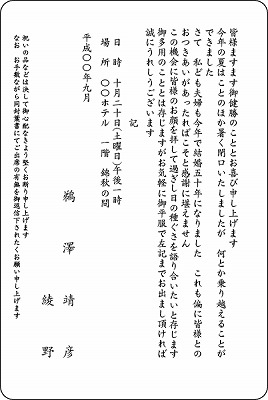 皆様ますます御健勝のこととお喜び申し上げます
今年の夏はことのほか暑く閉口いたしましたが 何とか乗り越えることが
できました
さて 私ども夫婦も今年で結婚五十年になりました これも偏に皆様との
おつきあいがあったればこそと感謝に堪えません
この機会に皆様のお顔を拝して過ぎし日の種ぐさを語り合いたいと存じます
御多用のこととは存じますがお気軽に御平服で左記までお出まし頂ければ
誠にうれしうございます
記
日 時 十月二十日(土曜日)午後一時
場 所 〇〇ホテル 一階 錦秋の間
平成〇〇年九月
鵜澤靖彦
綾野
祝いの品などは決して御心配なきよう堅くお断り申し上げます
なお お手数ながら同封葉書にてご出席の有無を御返信下されたくお願い申し上げます